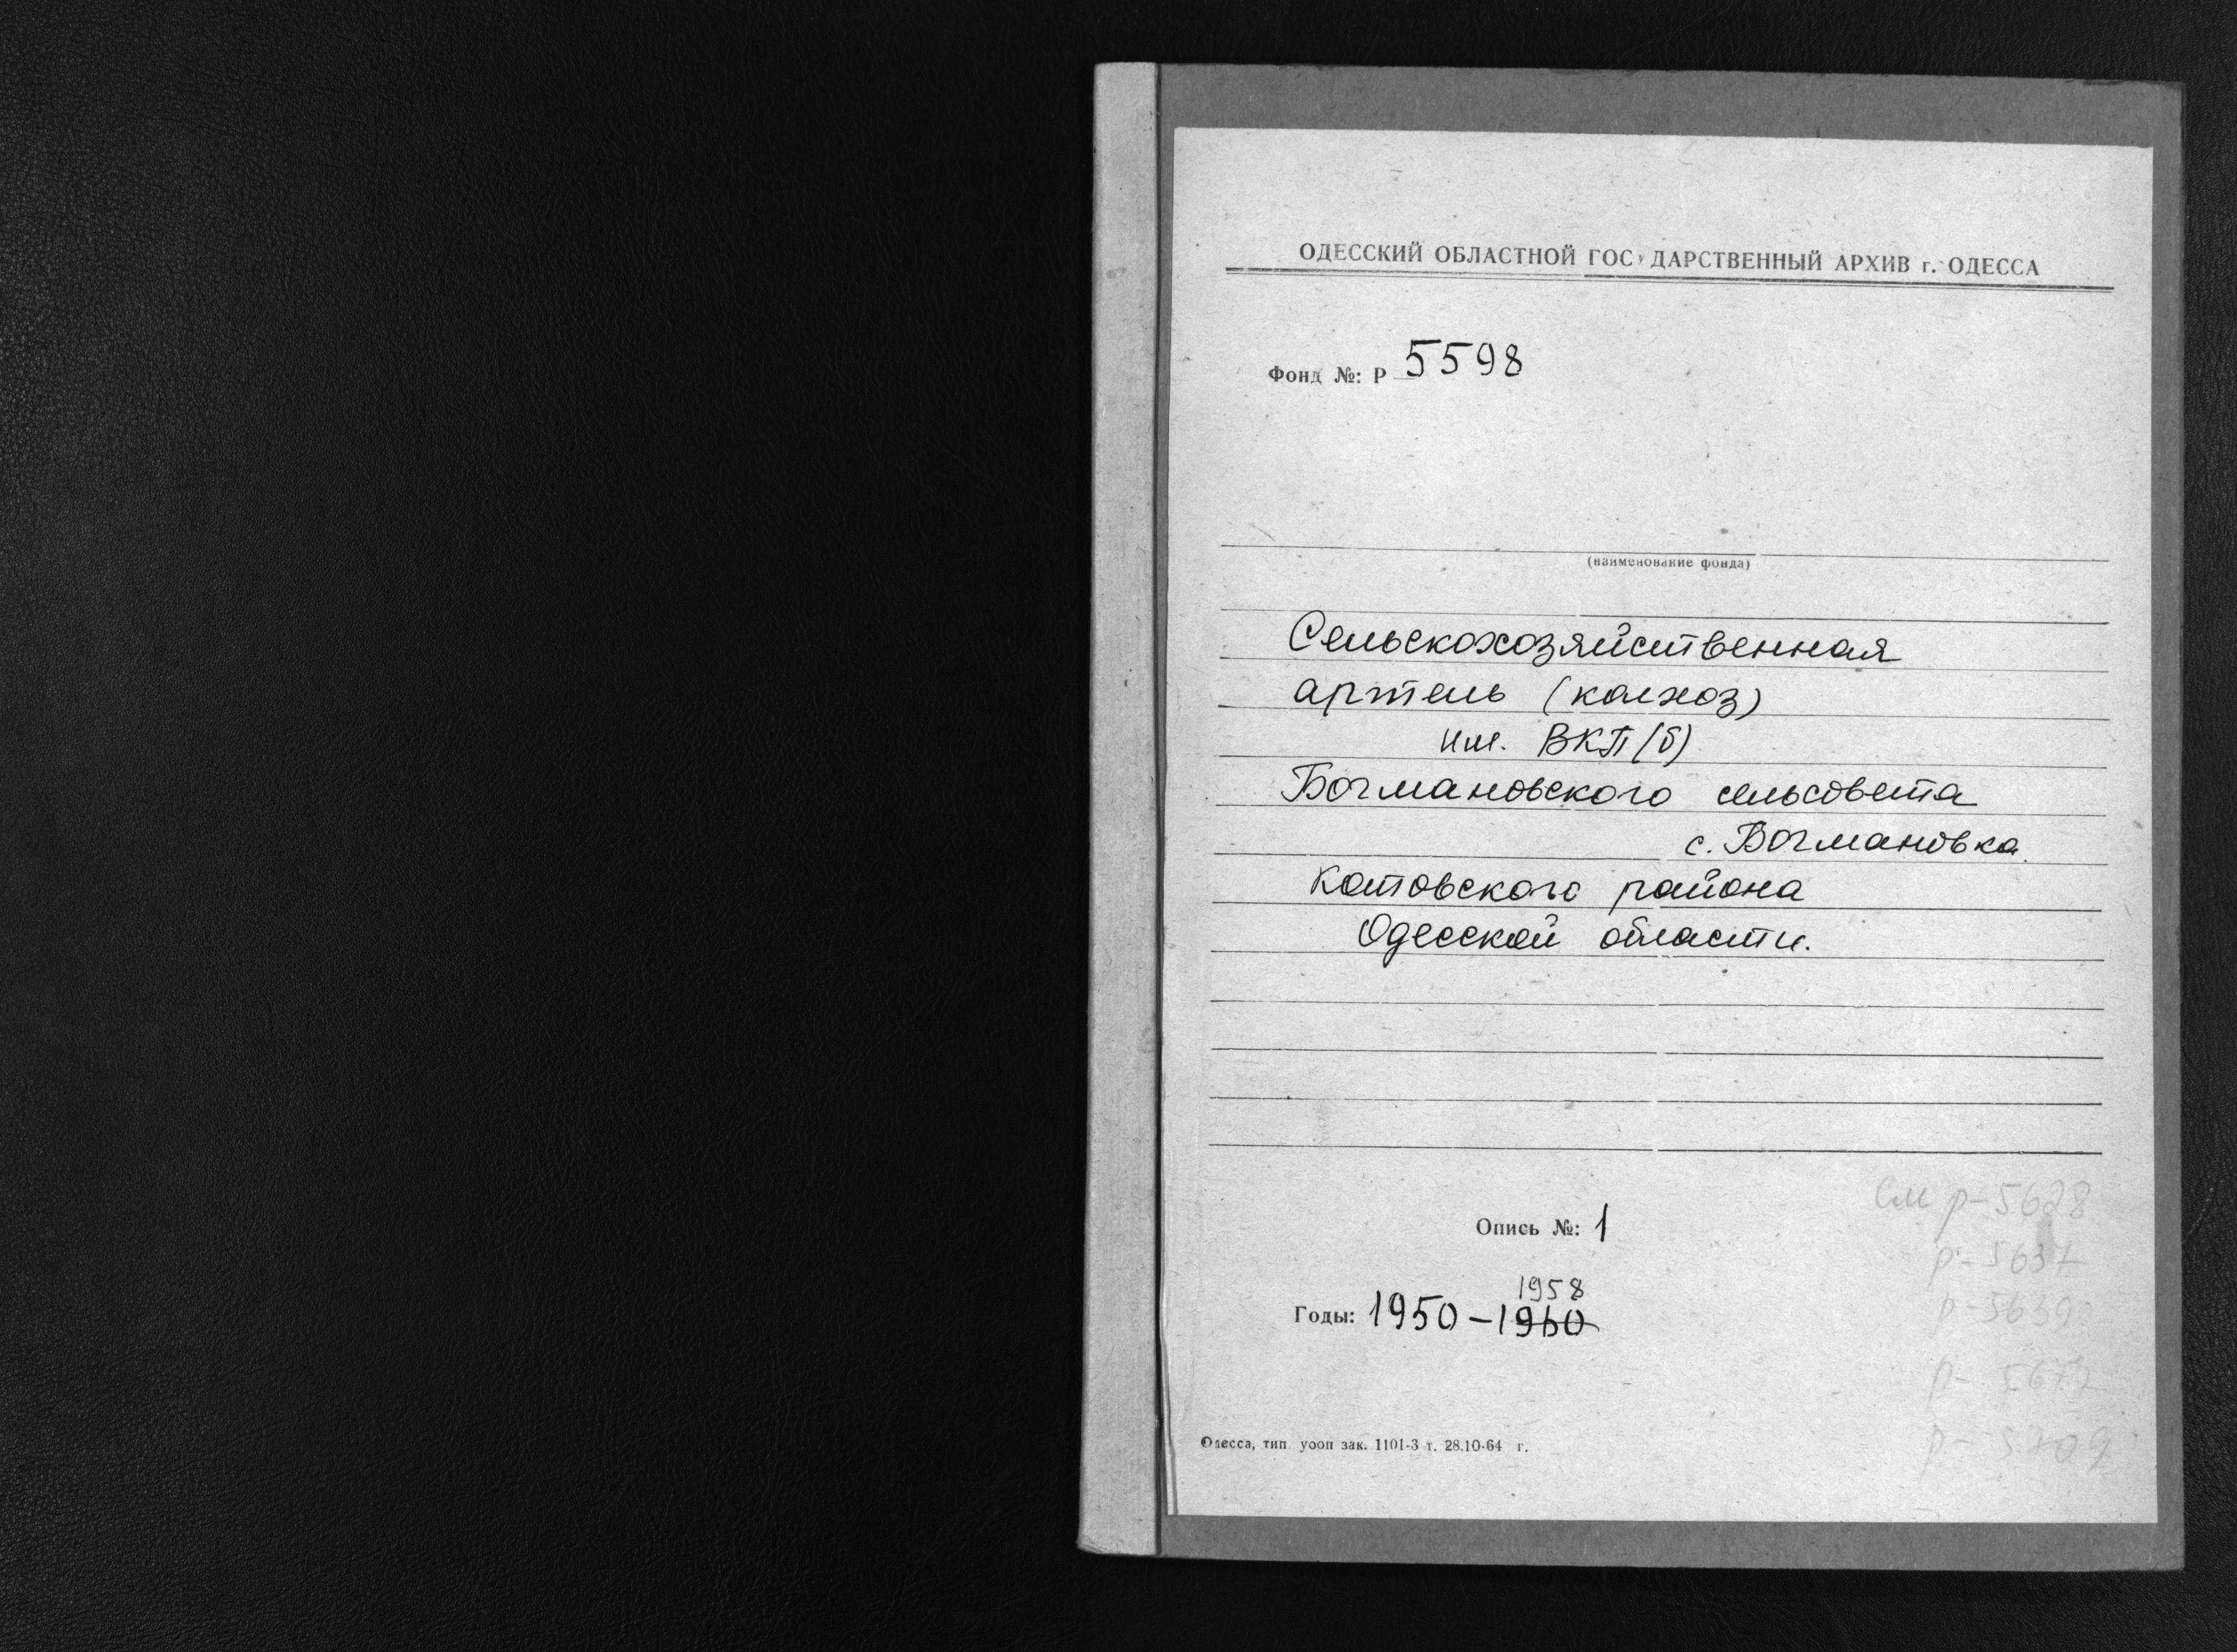 ОДЕССКИЙ ОБЛАСТНОЙ ГОСУДАРСТВЕННЫЙ АРХИВ г. ОДЕССА
Фонд №: Р 5598
(наименование фонда)
Сельскохозяйственная
артель (колхоз)
им. ВКП(б)
Бочмановского сельсовета
с. Бочмановка
Котовского района
Одесской области.
см р-5628
р-5637
р-5639
р-5677
р-5709
Опись №: 1
1958
Годы: 1950-1960
Одесса, тип. уооп зак. 1101-3 т. 28.10-64 г.